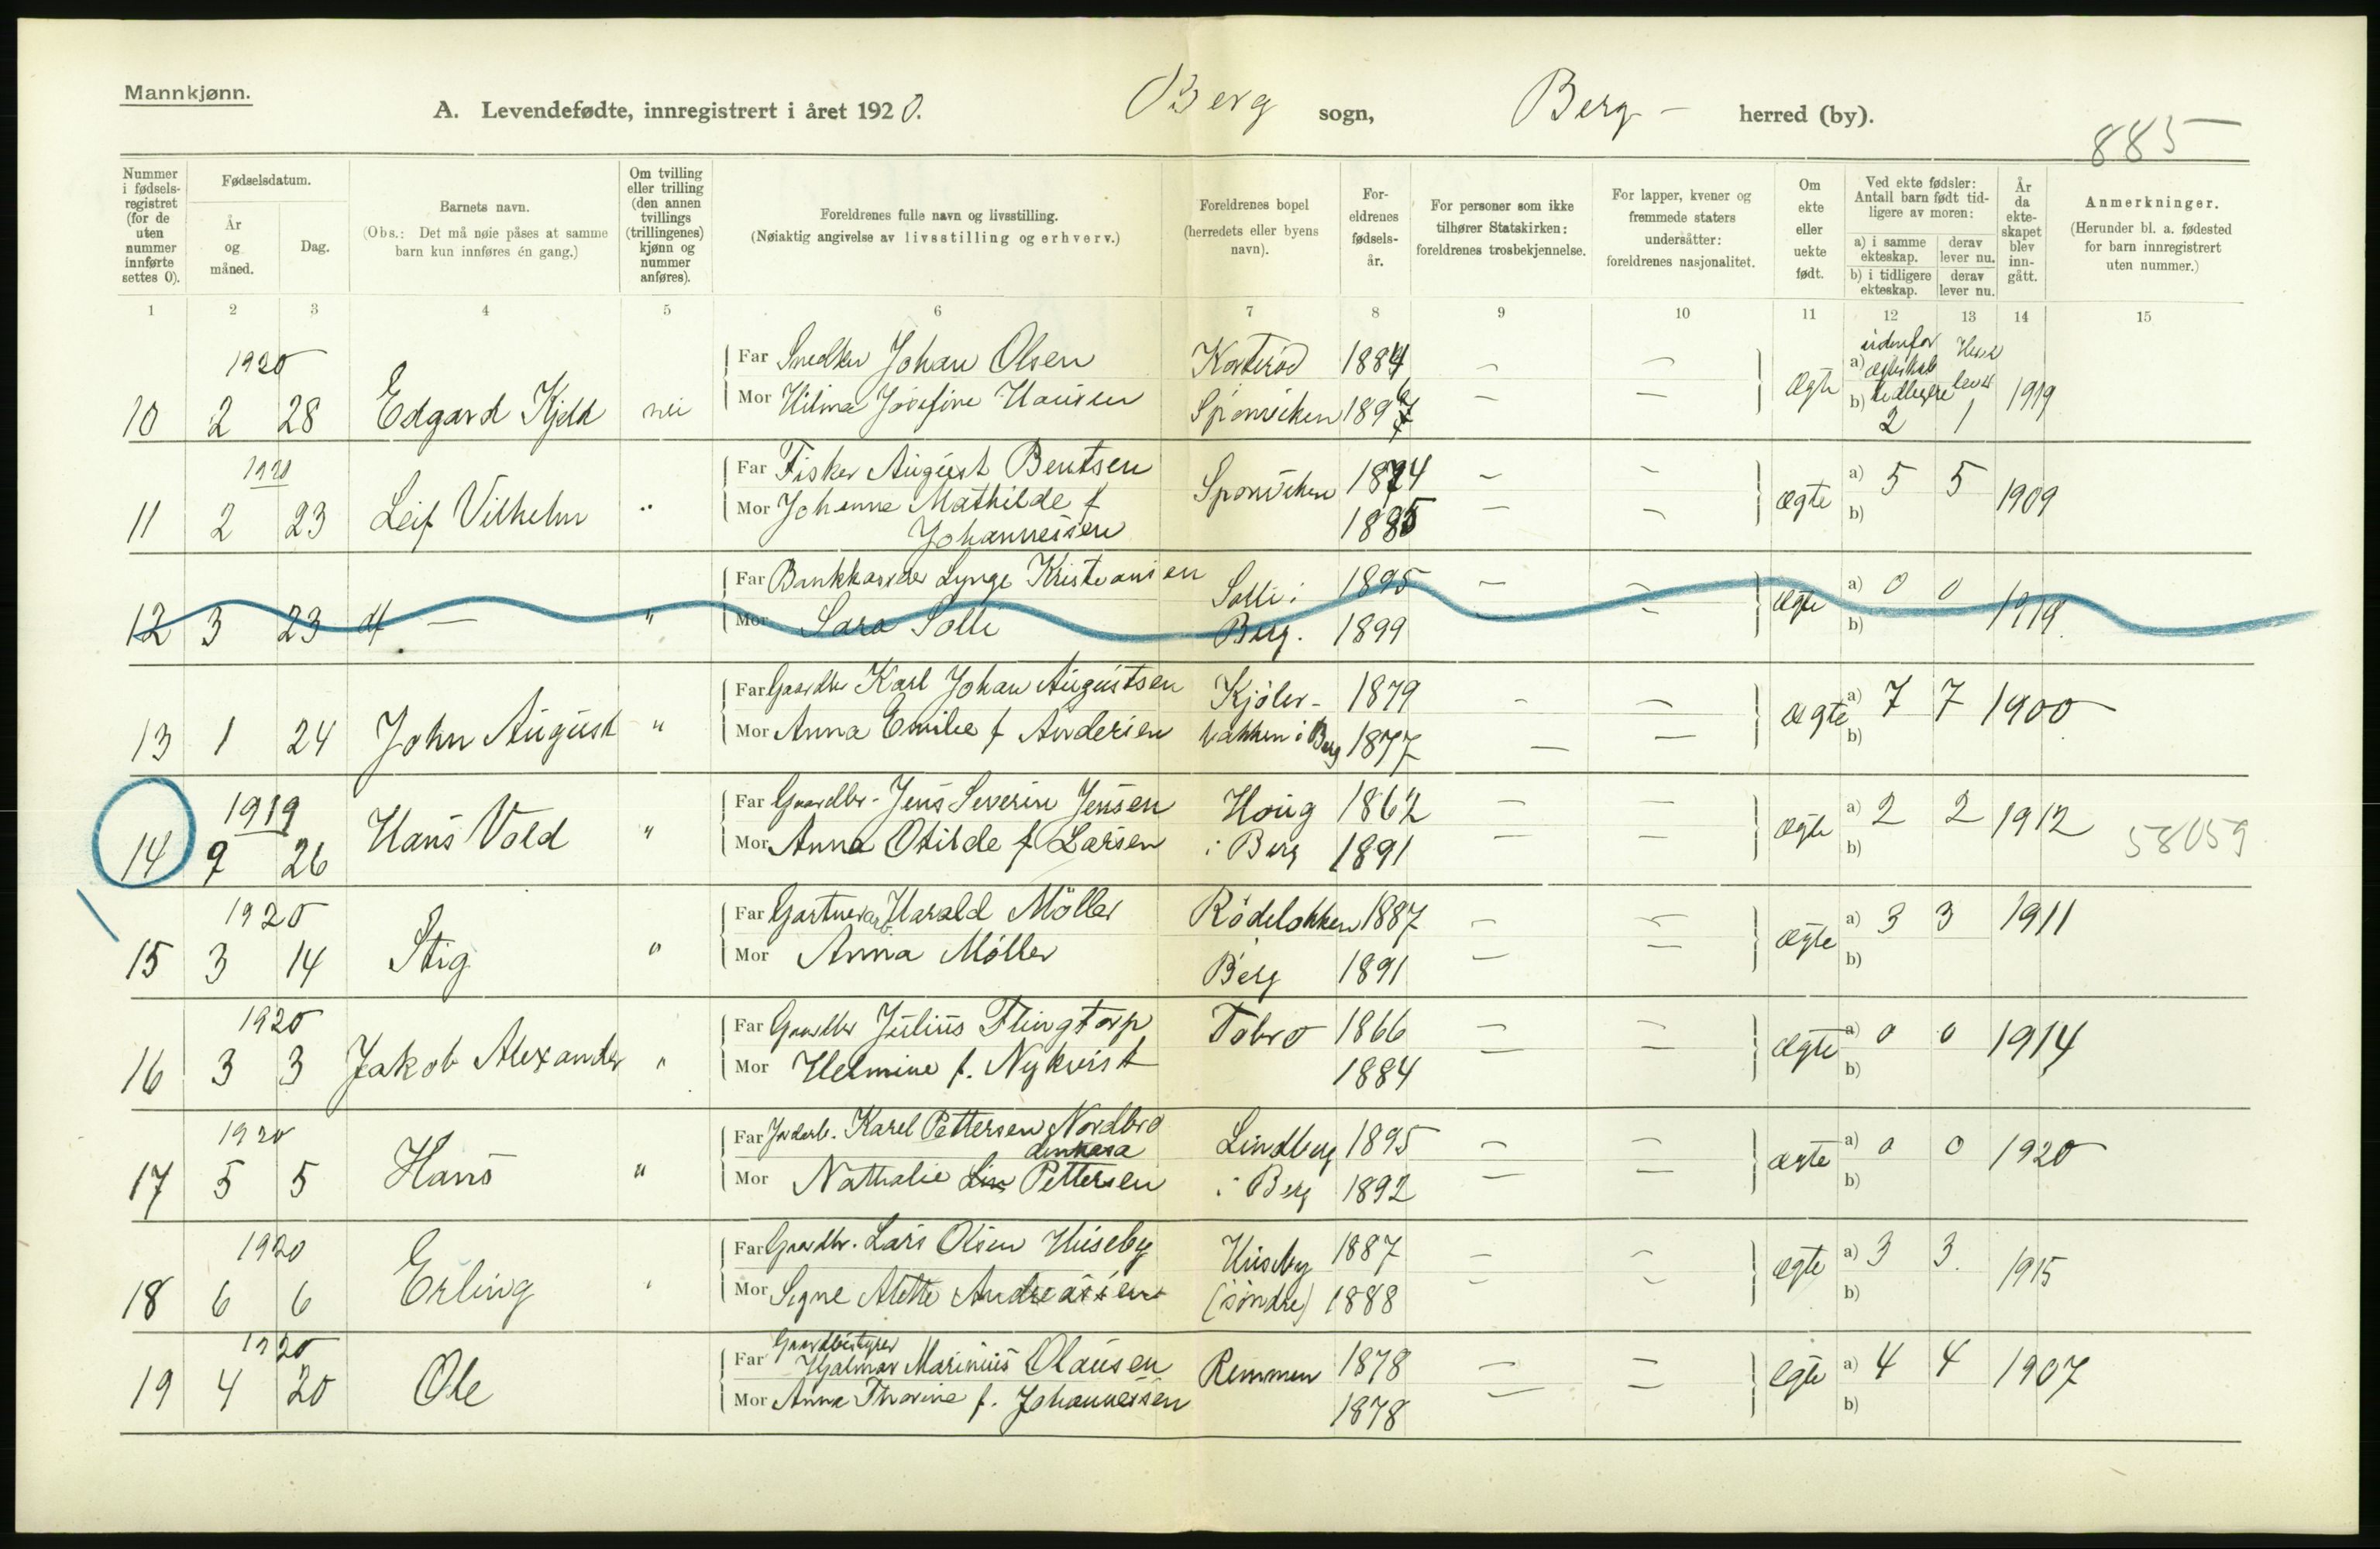 Mannkjønn.
A. Levendefødte, innregistrert i året 1920. Berg sogn, Berg - herred (by).
885
Nummer i fødsels-registret (for de uten nummer innførte settes 0).
Fødselsdatum.
År og måned.
Dag.
Barnets navn.
(Obs.: Det må nøie påses at samme barn kun innføres én gang.)
Om tvilling eller trilling (den annen tvillings (trillingenes) kjønn og nummer anføres).
Foreldrenes fulle navn og livsstilling.
(Nøiaktig angivelse av livsstilling og erhverv.)
Foreldrenes bopel (herredets eller byens navn).
For-eldrenes fødsels-år.
For personer som ikke tilhører Statskirken: foreldrenes trosbekjennelse.
For lapper, kvener og fremmede staters undersåtter: foreldrenes nasjonalitet.
Om ekte eller uekte født.
Ved ekte fødsler: Antall barn født tid-ligere av moren:
a) i samme ekteskap. derav lever nu.
b) i tidligere ekteskap. derav lever nu.
År da ekte-skapet blev inn-gått.
Anmerkninger.
(Herunder bl. a. fødested for barn innregistrert uten nummer.)
1 2 3 4 5 6 7 8 9 10 11 12 13 14 15
1920 Far Johan Olsen 1884 — — a)
10 2 28 Edgard nei Mor Hilma Josefine Hansen Sponviken — — Ægte b) 2 1 1919
1920 Far Fisker August Bentsen Sponviken 1874 — — a) 5 5
11 2 23 Leif Vilhelm " Mor Johanne Mathilde f — — ægte b) 1909
Johannessen 1885
Far Lynge Kristiansen Solli i 1895 — — a) 0 0
12 3 23 df — " Mor Sara Solli Berg. 1899 — ægte b) 1919
Far Gaardbr Karl Johan Augustsen Kjöler- 1879 — — a) 7 7 1900
13 1 24 John August " Mor Anna Emilie f Andersen bakken i Berg 1877 — — ægte b)
1919 Far Gaardbr. Jens Severin Jensen Houg 1862 — — a) 2 2 1912
14 9 26 Hans Vold " Mor Anna Otilde f Larsen i Berg 1891 — — ægte b) 58059
1920 Far Gartnerarb. Harald Möller Rödelökken 1887 — — a) 3 3 1911
15 3 14 Stig " Mor Anna Möller Berg 1891 — — ægte b)
1920 Far Gaardbr Julius Flingtorp Tobro 1866 — — a) 0 0 1914
16 3 3 Jakob Alexander " Mor Helmine f. Nykvist 1884 — — ægte b)
1920 Far Jordarb. Karel Pettersen Nordbro Lindberg 1895 — — a) 0 0 1920
17 5 5 Hans " Mor Nathalie Pettersen i Berg 1892 — — ægte b)
1920 Far Gaardbr. Lars Olsen Huseby Huseby 1887 — — a) 3 3
18 6 6 Erling " Mor Signe Alette Andreassen (söndre) 1888 — — ægte b) 1915
1920 Gaardbestyrer
Far Hjalmar Marinius Olausen Remmen 1878 — — a) 4 4 1907
19 4 20 Ole Mor Anna Thorine f. Johannessen 1878 — — ægte b)